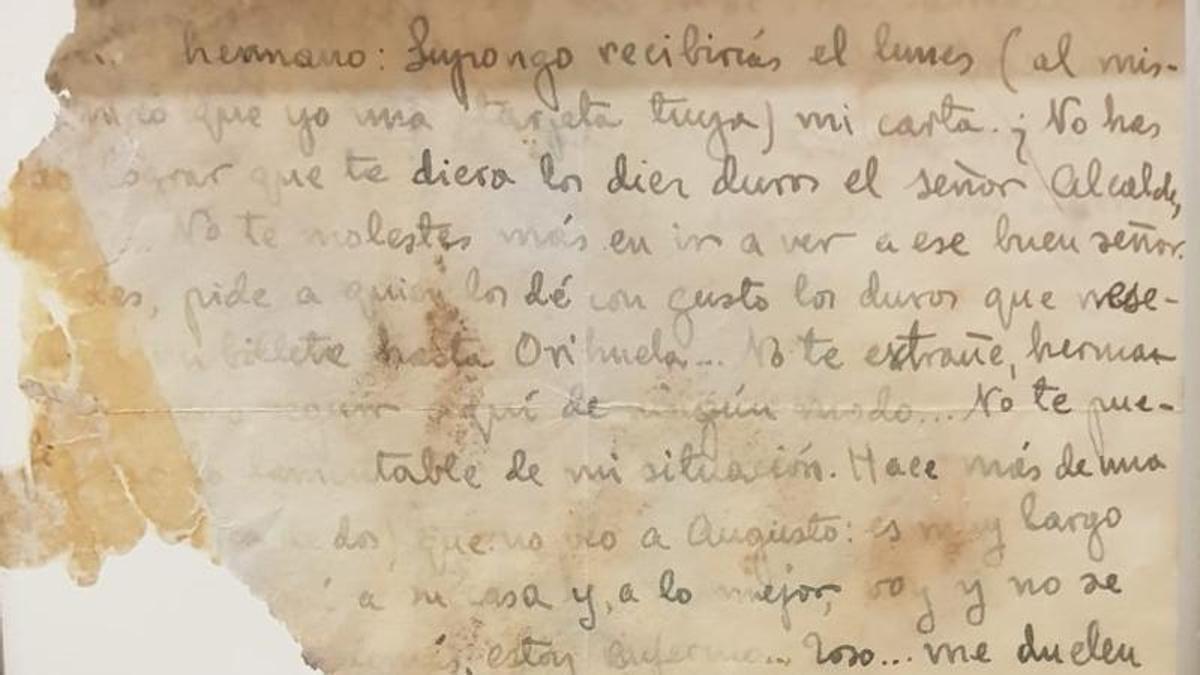 hermano: Supongo recibirías el lunes (al mis-
que yo una tarjeta tuya) mi carta. ¿No has
lograr que te diera los diez duros el señor Alcalde,
No te molestes más en ir a ver a ese buen señor.
pide a quien los dé con gusto los duros que nese-
billete hasta Orihuela... No te extrañe, herman
seguir aquí de ningún modo... No te pue-
lamentable de mi situación. Hace más de una
de dos) que no veo a Augusto: es muy largo
a su casa y, a lo mejor, voy y no se
estoy enfermo... Toso... me duelen